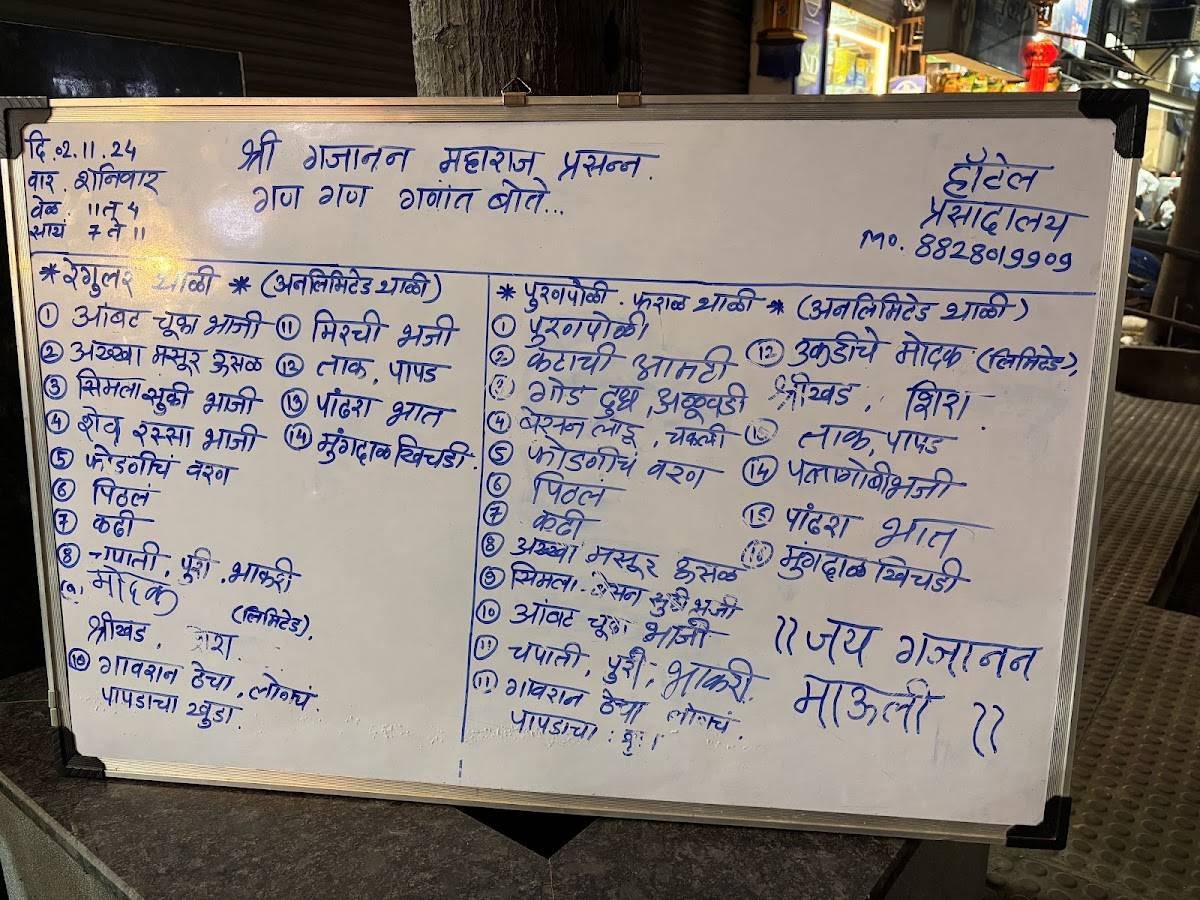 दि.०2.11.24
वार. शनिवार
वेळ. 11 ते 4
सायं 7 ते 11
श्री गजानन महाराज प्रसन्न.
गण गण गणांत बोते...
हॉटेल
प्रसादालय
Mo. 8828019909
* रेगुलर थाळी * (अनलिमिटेड थाळी)
① आंबट चूका भाजी
② अख्खा मसूर ऊसळ
③ सिमला सुकी भाजी
④ शेव रस्सा भाजी
⑤ फोडणीचं वरण
⑥ पिठलं
⑦ कढी
⑧ चपाती, पुरी, भाकरी
⑨ मोदक
(लिमिटेड).
श्रीखंड,
⑩ गावरान ठेचा, लोणचं
पापडाचा खुडा.
⑪ मिरची भजी
⑫ ताक, पापड
⑬ पांढरा भात
⑭ मुंगदाळ खिचडी.
* पुरणपोळी. फराळ थाळी * (अनलिमिटेड थाळी)
① पुरणपोळी
② कटाची आमटी
③ गोड दुध, अळूवडी
④ बेसन लाडू, चकली
⑤ फोडणीचं वरण
⑥ पिठलं
⑦ कढी
⑧ अख्खा मसूर ऊसळ
⑨ सिमला. बेसन भजी
⑩ आंबट चूका भाजी
⑪ चपाती, पुरी, भाकरी.
⑪ गावरान ठेचा लोणचं.
पापडाचा
⑫ उकडीचे मोदक (लिमिटेड),
श्रीखंड, शिरा.
⑬ ताक, पापड
⑭ पत्तागोबी भजी
⑮ पांढरा भात
⑯ मुंगदाळ खिचडी
॥ जय गजानन
माऊली ॥